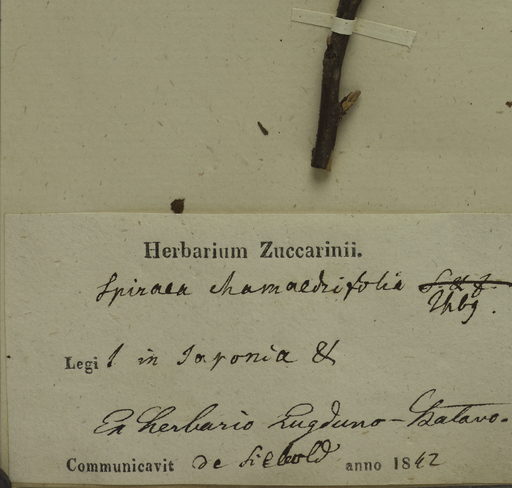 Herbarium Zuccarinii.
Spiraea chamaedrifolia S. & Z.
Thbg.
Legit in Japonia &
Ex herbario Lugduno-Batavo.
Communicavit de Siebold anno 1842